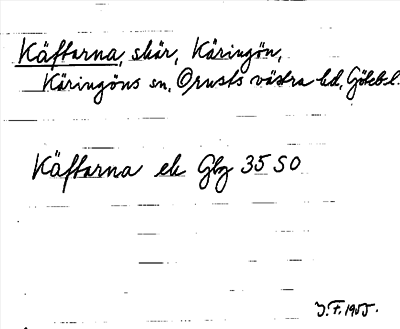 Käftarna, skär, Käringön,
Käringöns sn, Orusts västra hd, Götebl.
Käftarna ek Gbg 35 SO
J.F. 1955.